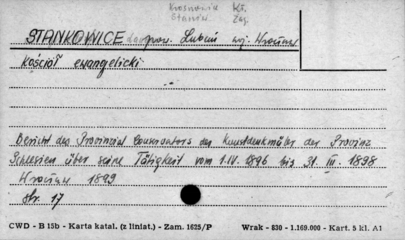 STANKOWICE pow. Lubań woj. Wrocław
Kościół ewangelicki
Bericht des Provinzial Conservators der Kunstdenkmäler der Provinz
Schlesien über seine Tätigkeit vom 1.IV. 1896 bis 31. III. 1898
Wrocław 1899
str. 17
CWD - B 15b - Karta katal. (z liniat.) - Zam. 1625/P Wrak - 830 - 1.169.000 - Kart. 5 kl. A1